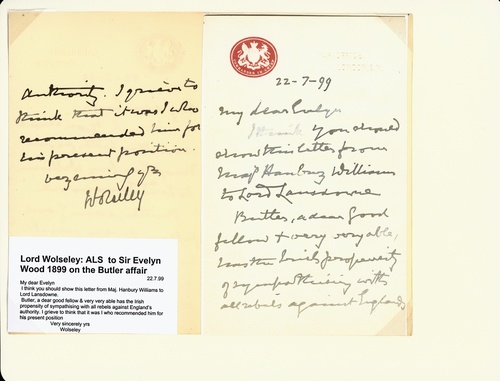 22-7-99
My dear Evelyn
I think you should
show this letter from
Majr Hanbury Williams
to Lord Lansdowne
Butler, a dear good
fellow & very very able,
has the Irish propensity
of sympathising with
all rebels against England's
authority. I grieve to
think that it was I who
recommended him for
his present position.
very sincerely yrs
Wolseley
Lord Wolseley: ALS to Sir Evelyn
Wood 1899 on the Butler affair
22.7.99
My dear Evelyn
I think you should show this letter from Maj. Hanbury Williams to
Lord Lansdowne.
Butler, a dear good fellow & very very able has the Irish
propensity of sympathising with all rebels against England's
authority. I grieve to think that it was I who recommended him for
his present position
Very sincerely yrs
Wolseley